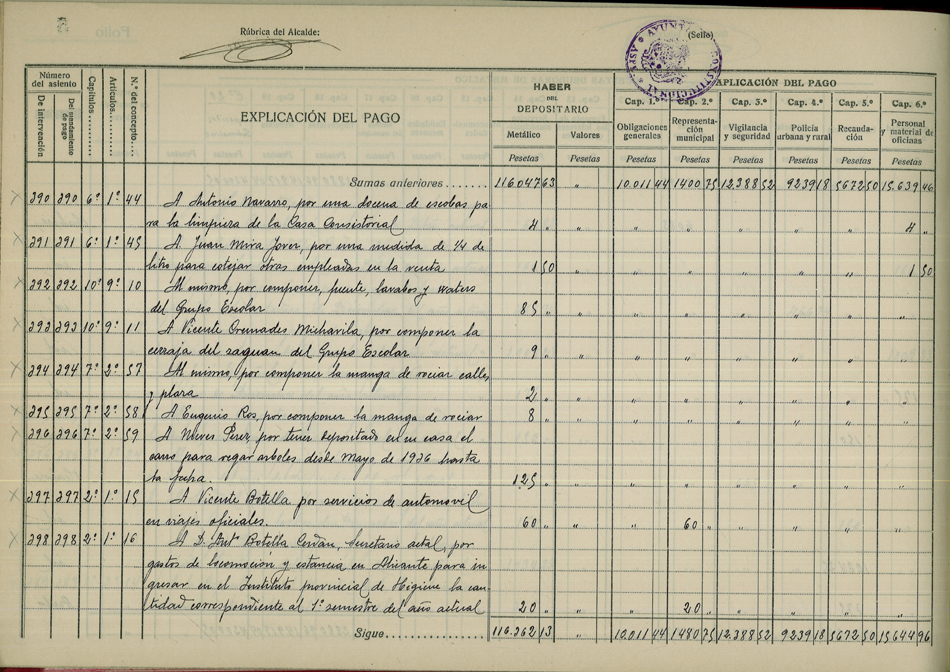 Rúbrica del Alcalde:
(Sello)
AYUNT CONSTITUCIONAL ASPE
Número del asiento
De intervención
Del mandamiento de pago
Capítulos
Artículos
N.º del concepto
EXPLICACIÓN DEL PAGO
HABER DEL DEPOSITARIO
Metálico
Pesetas
Valores
Pesetas
APLICACIÓN DEL PAGO
Cap. 1.º Obligaciones generales Pesetas
Cap. 2.º Representación municipal Pesetas
Cap. 3.º Vigilancia y seguridad Pesetas
Cap. 4.º Policía urbana y rural Pesetas
Cap. 5.º Recaudación Pesetas
Cap. 6.º Personal y material de oficinas Pesetas
Sumas anteriores 116.047 63 " 10.011 44 1400 75 12.388 52 9239 18 5672 50 15.639 46
290 290 6º 1º 44 A Antonio Navarro, por una docena de escobas pa
ra la limpieza de la Casa Consistorial 4 " " " " " " " 4 "
291 291 6º 1º 45 A Juan Mira Jover, por una medida de 1/4 de
litro para cotejar otras empleadas en la venta 1 50 " " " " " " 1 50
292 292 10º 9º 10 Al mismo, por componer, fuente, lavabos y waters
del Grupo Escolar 85 " " " " " " " "
293 293 10º 9º 11 A Vicente Cremades Michavila, por componer la
cerraja del zaguan del Grupo Escolar 9 " " " " " " " "
294 294 7º 2º 57 Al mismo, por componer la manga de rociar calles
y plaza 2 " " " " " " " "
295 295 7º 2º 58 A Eugenio Ros, por componer la manga de rociar 8 " " " " " " " "
296 296 7º 2º 59 A Nieves Pérez, por tener depositado en su casa el
carro para regar arboles desde Mayo de 1926 hasta
la fecha. 125 " " " " " " " "
297 297 2º 1º 15 A Vicente Botella por servicios de automovil
en viajes oficiales. 60 " " " 60 " " " " "
298 298 2º 1º 16 A D. Antº Botella Cerdán, Secretario actal, por
gastos de locomoción y estancia en Alicante para in
gresar en el Instituto provincial de Higiene la can
tidad correspondiente al 1º semestre del año actual 20 " " " 20 " " " " "
Sigue 116.362 13 " 10.011 44 1480 75 12.388 52 9239 18 5672 50 15644 96